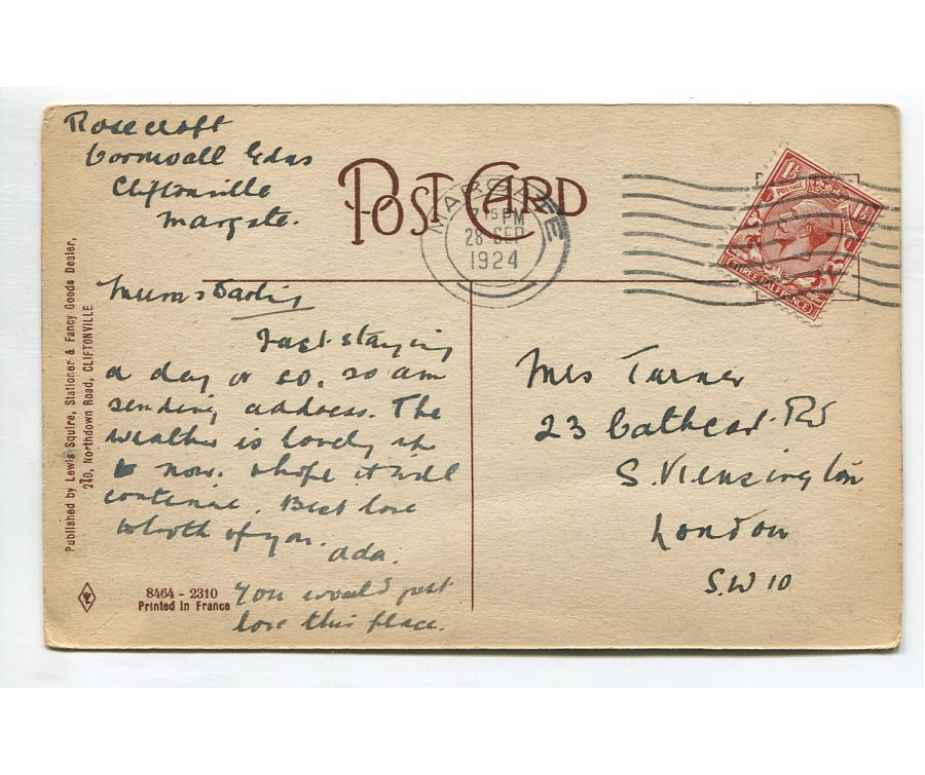 Rosecroft
Cornwall Gdns
Cliftonville
Margate.
POST CARD
MARGATE
7 15 PM
28 SEP
1924
POSTAGE
THREE HALFPENCE
Mum's Darling
Just staying
a day or so, so am
sending address. The
weather is lovely
now. I hope it will
continue. Best love
to both of you.
Ada.
You would just
love this place.
Mrs Turner
23 Cathcart Rd
S. Kensington
London
S.W 10
Published by Lewis Squire, Stationer & Fancy Goods Dealer,
210, Northdown Road, CLIFTONVILLE
8464 - 2310
Printed in France